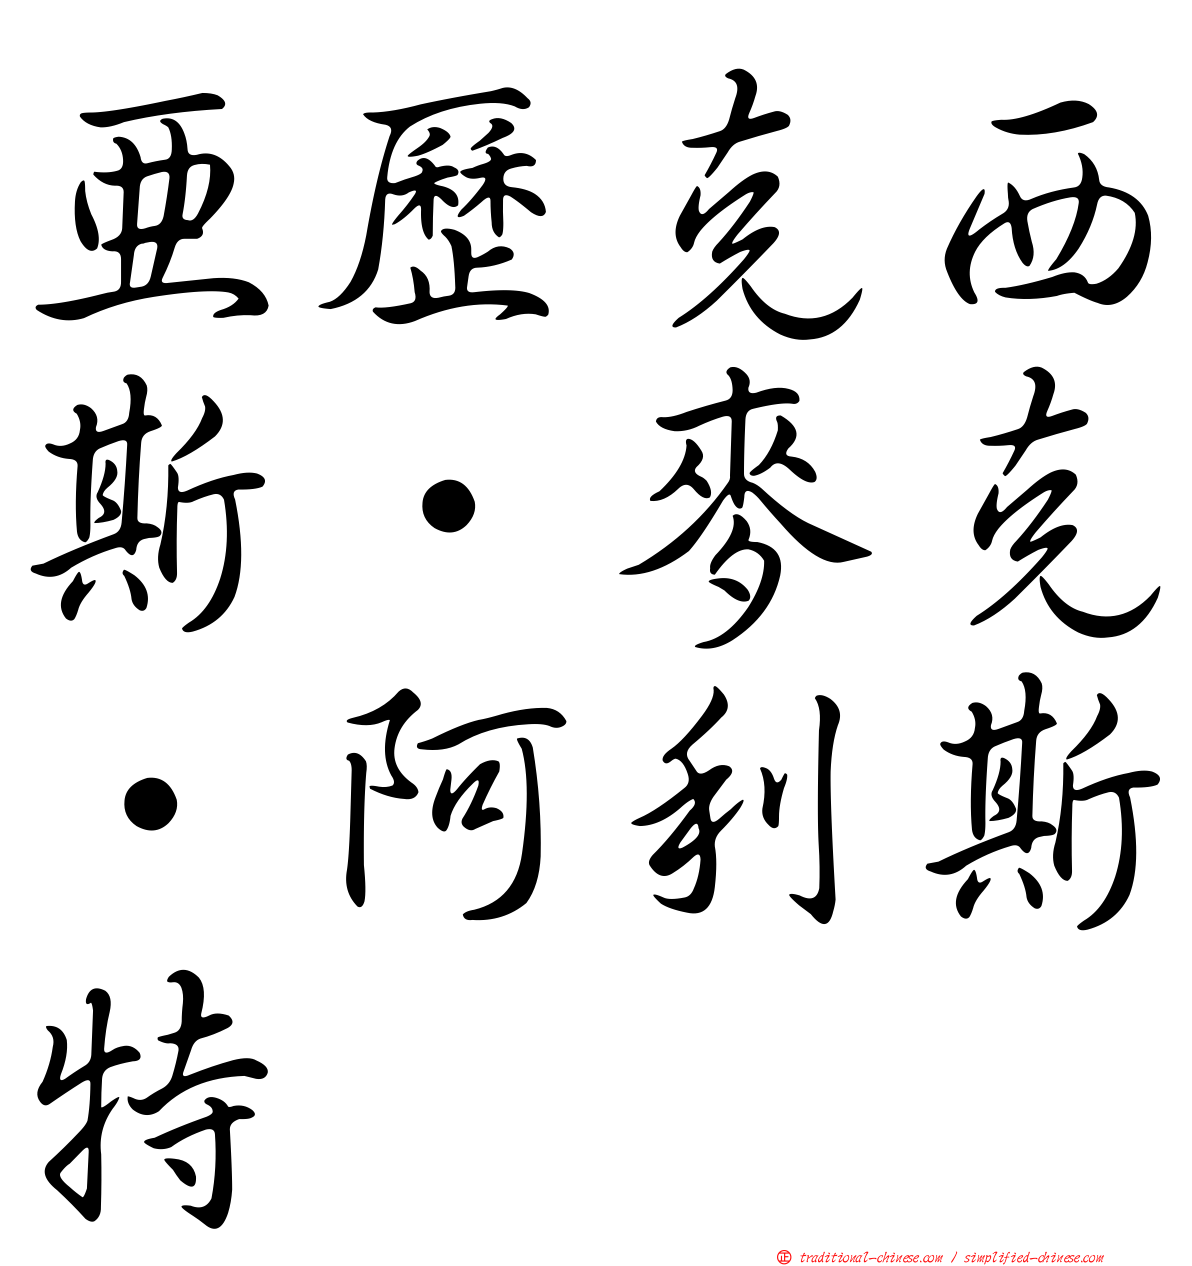 亞歷克西
斯・麥克
・阿利斯
特
正 traditional-chinese.com / simplified-chinese.com